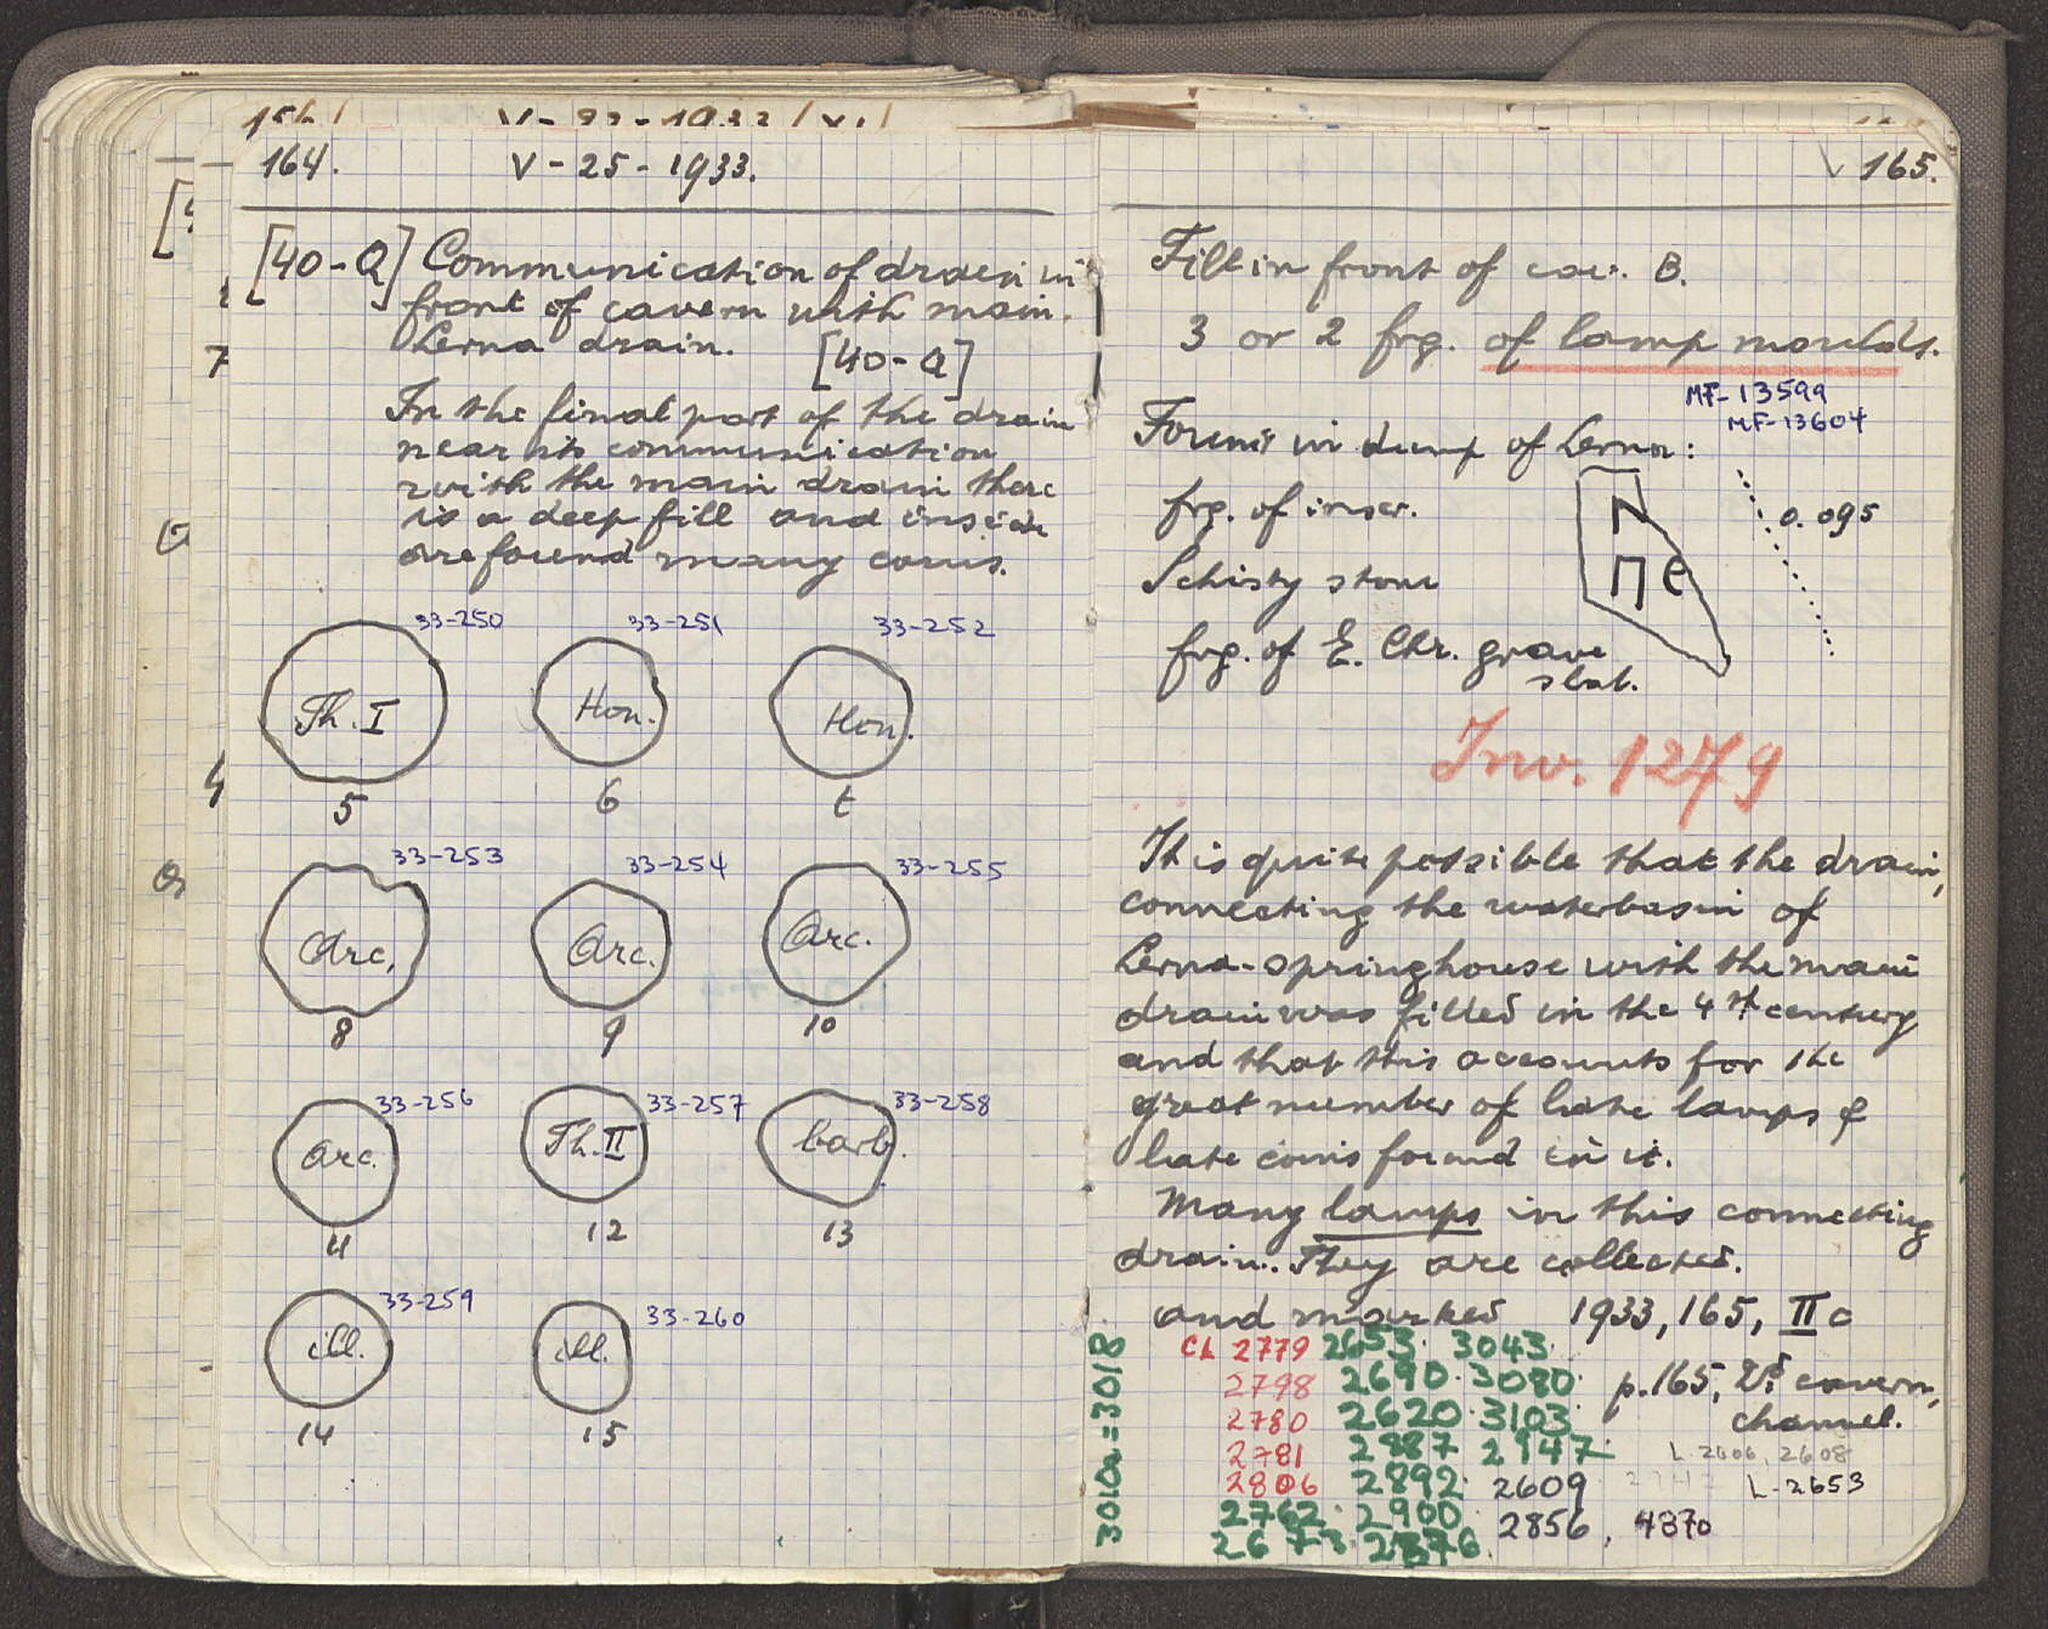 164. V - 25 - 1933.
[40-Q] Communication of drain in
front of cavern with main
Lerna drain. [40-Q]
In the final part of the drain
near its communication
with the main drain there
is a deep fill and inside
are found many coins.
33-250 33-251 33-252
Th. I Hon. Hon.
5 6 t
33-253 33-254 33-255
Arc. Arc. Arc.
8 9 10
33-256 33-257 33-258
Arc. Th. II barb.
11 12 13
33-259 33-260
ill. ill.
14 15
V 165.
Fill in front of cav. B.
3 or 2 frg. of lamp moulds.
MF-13599
MF-13604
Found in dump of Lerna:
frg. of inscr.
N
0.095
Schisty stone
Π e
frg. of E. Chr. grave
slab.
Inv. 1279
It is quite possible that the drain,
connecting the waterbasin of
Lerna-springhouse with the main
drain was filled in the 4th century
and that this accounts for the
great number of late lamps &
late coins found in it.
Many lamps in this connecting
drain. They are collected.
and marked 1933, 165, II c
CL 2779 2653 3043
2798 2690 3080 p.165, 2d cavern,
2780 2620 3103 channel.
2781 2887 2947 L 2606, 2608
2806 2892 2609 L-2653
2762 2900 2856, 4370
2673 2876
3010a=3018